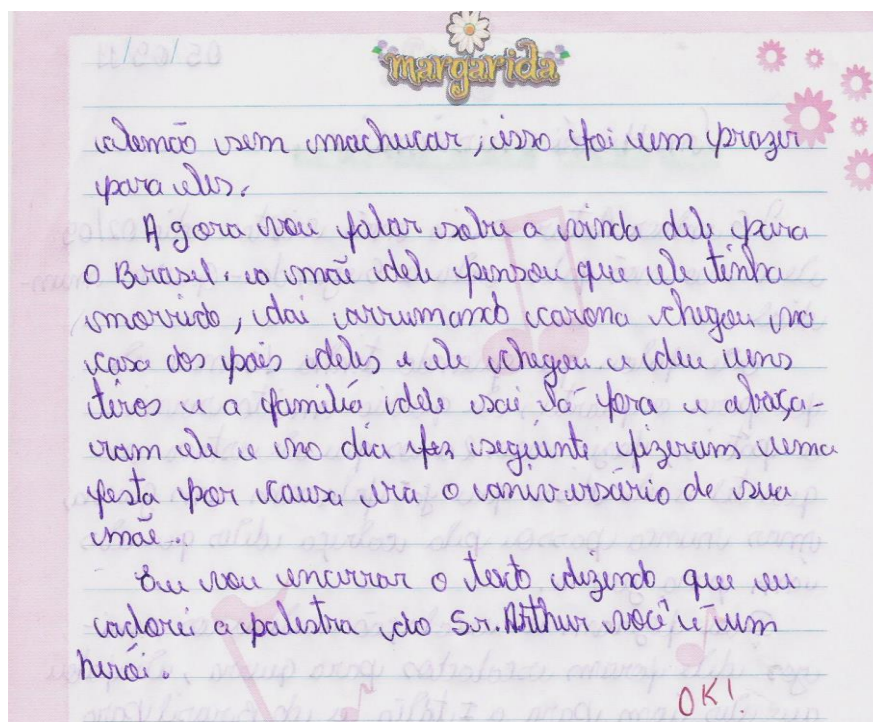 margarida
alemão sem machucar, isso foi um prazer
para eles.
Agora vou falar sobre a vinda dele para
o Brasel. a mãe dele pensou que ele tinha
morrido, dai arrumando carona chegou na
casa dos pais deles e ele chegou e deu uns
tiros e a familiá dele sai lá fora e abraça-
ram ele e no dia fes seguinte fizeram uma
festa por causa erá o aniversário de sua
mãe.
Eu vou encerrar o texto dizendo que eu
adorei a palestra do Sr. Arthur você é um
herói.
OK!